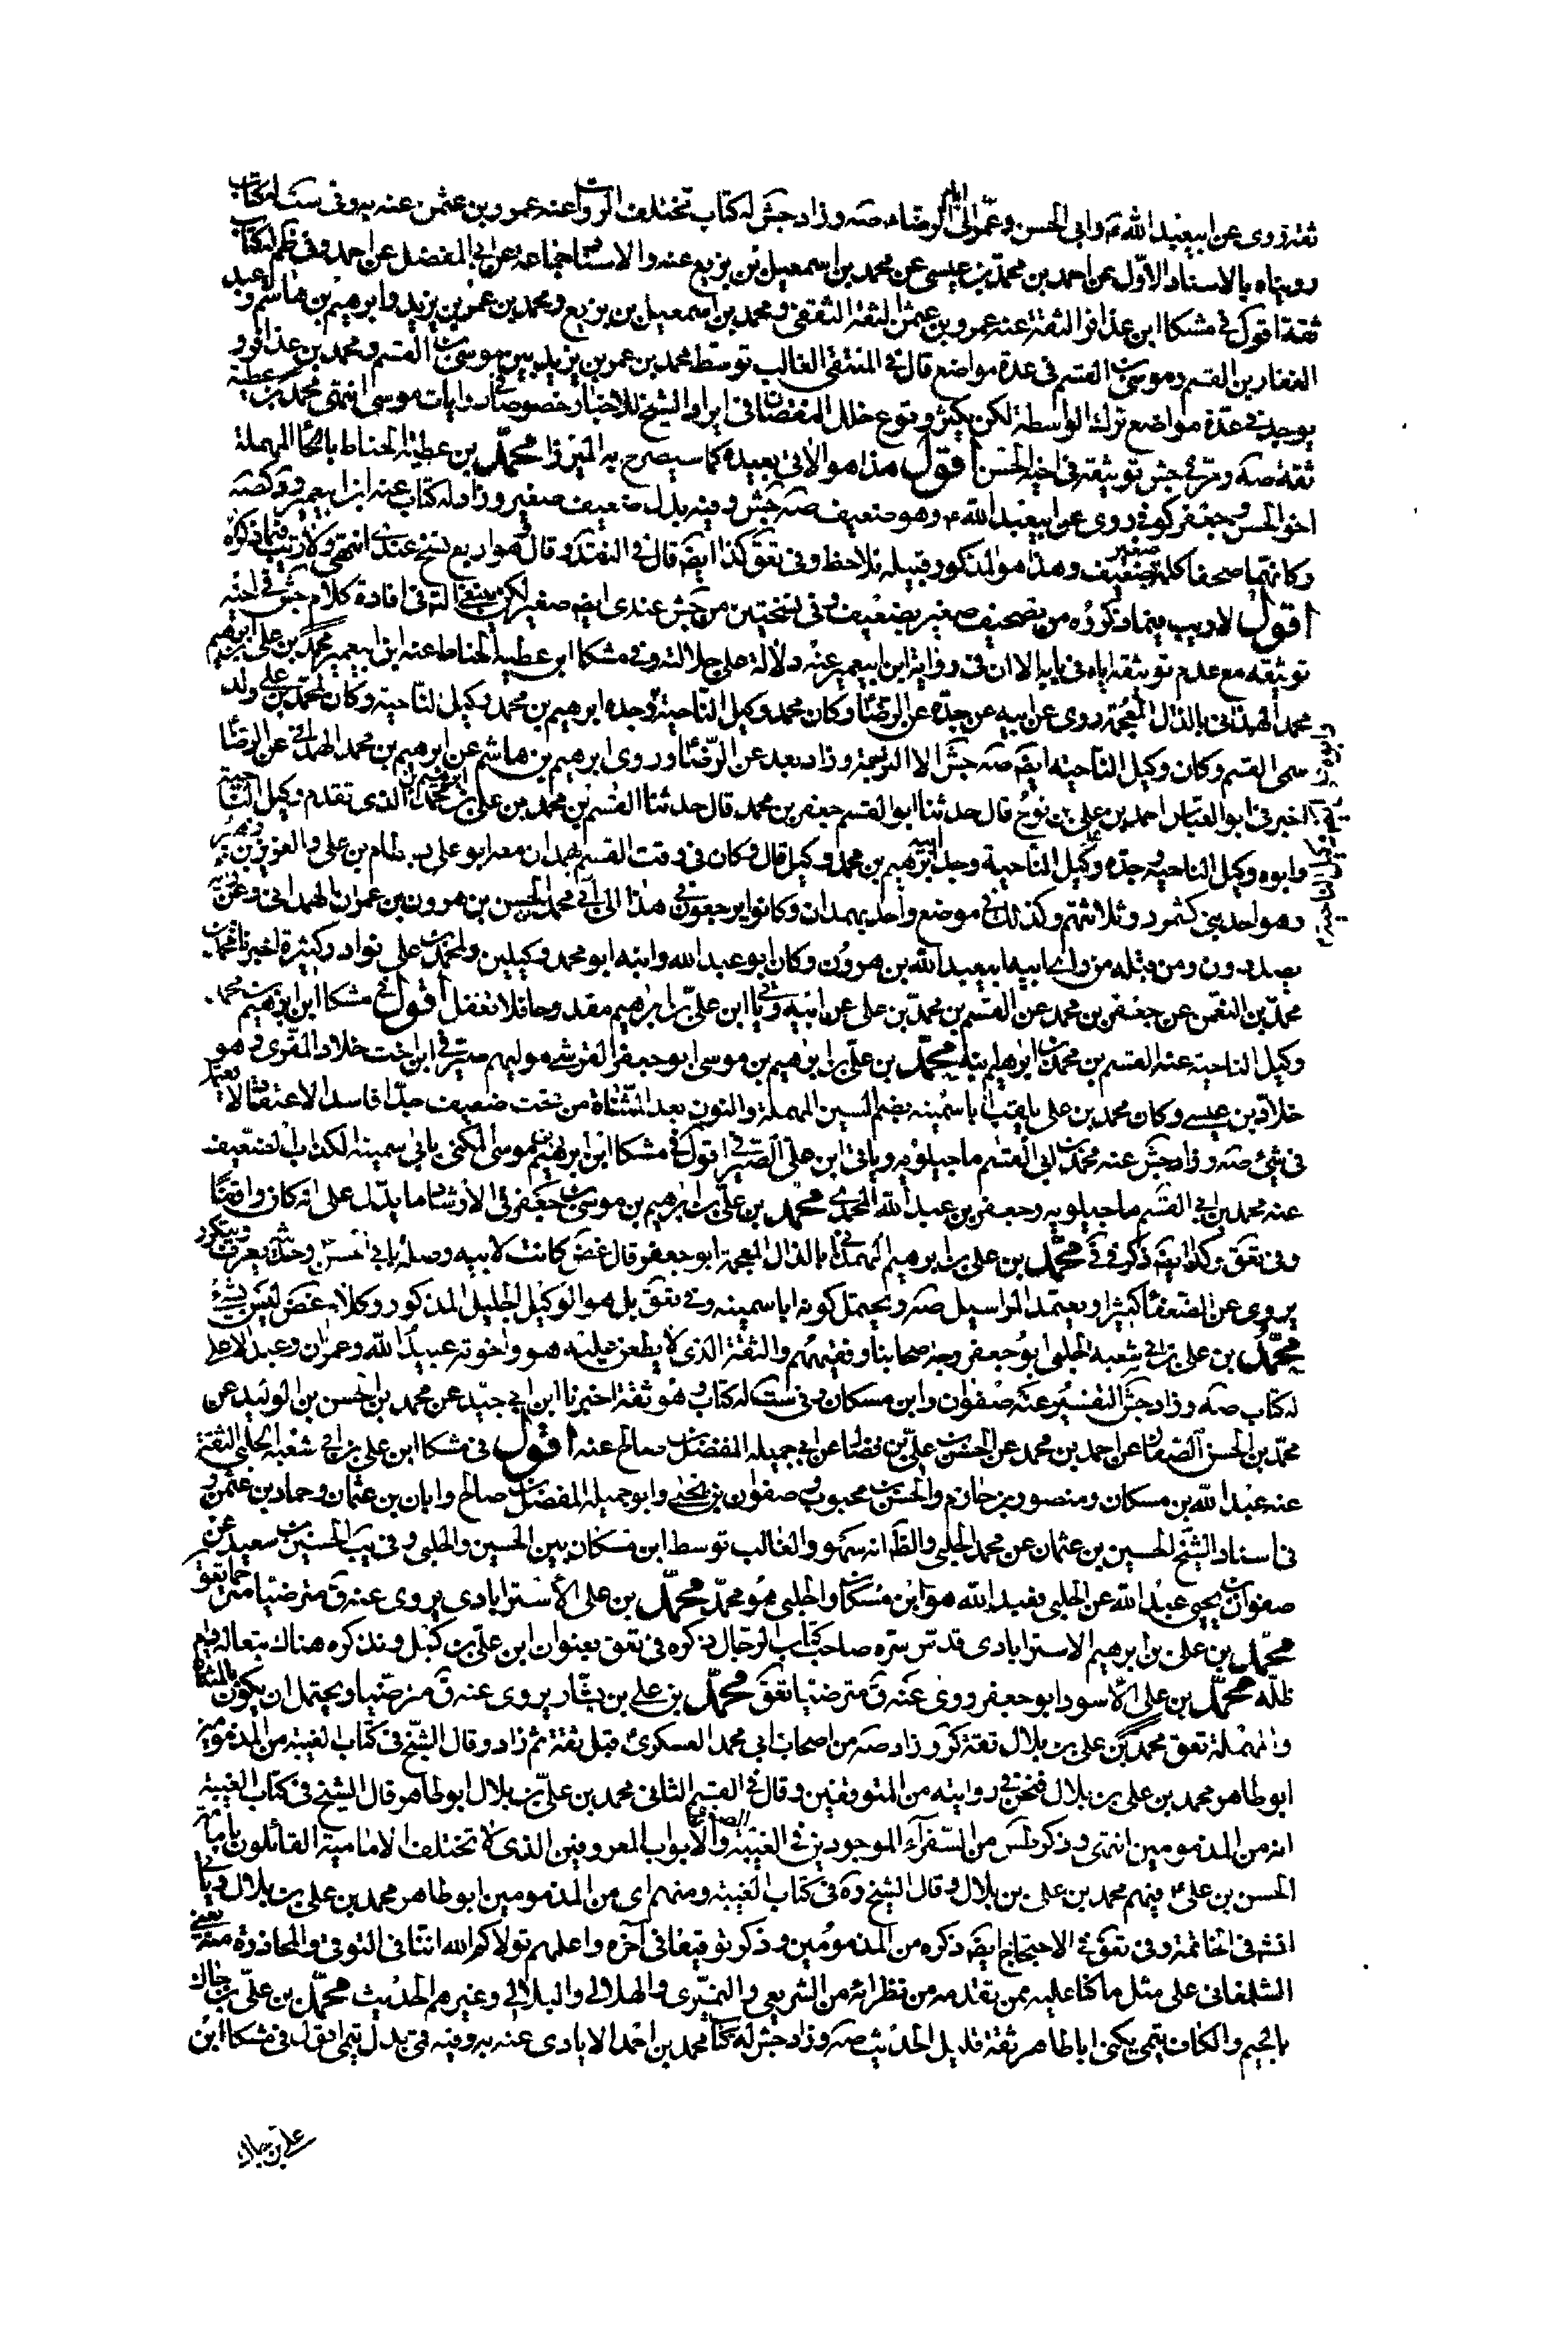 ثقة روى عن ابيعبد الله ع وابي الحسن وعمر الى ايام الرضاء صه وزاد جش له كتاب تختلف الرواة عنه عمرو بن عثمن عنه به وفى ست له كتاب
رويناه بالاسناد الاول عن احمد بن محمد بن عيسى عن محمد بن اسمعيل بن بزيع عنه والاسناد جماعة عن ابى المفضل عن احمد وفى ظم له كتاب
ثقة اقول فى مشكا ابن عذافر الثقة عنه عمرو بن عثمن الثقة الثقفى ومحمد بن اسمعيل بن بزيع ومحمد بن عمر بن يزيد وابرهيم بن هاشم وعبد
الغفار بن القسم وموسى بن القسم فى عدة مواضع قال فى المنتقى الغالب توسط محمد بن عمر بن يزيد بين موسى بن القسم ومحمد بن عذافر و
يوجد فى عدة مواضع ترك الواسطة لكن يكثر وقوع خلل النقصان فى ايراد الشيخ للاخبار خصوصا فى روايات موسى انتهى محمد بن عطية
ثقة صه ومر فى جش توثيقه فى اخيه الحسن اقول هذا هو الاتى بعيده كما سيصرح به الميرزا محمد بن عطية الحناط بالحاء المهملة
اخو الحسن وجعفر كوفى روى عن ابيعبد الله ع وهو ضعيف صه جش وفيه بدل ضعيف صغير وزاد له كتاب عنه ابن ابيعمير
وكانهما صحفا كلمة صغير بضعيف وهذا هو المذكور قبيله فلاحظ وفى تعق كذا ايضه قال فى النقد وقال وهو اربع نسخ عندى انتهى ولا ريب فيما ذكراه
اقول لا ريب فيما ذكروه من تصحيف صغير بضعيف وفى نسختين من جش عندى ايضه صغير لكن فى افادة كلام جش فى اخيه
توثيقه مع عدم توثيقه اياه فى بابه الا ان فى رواية ابن ابيعمير عنه دلالة على جلالته وفى مشكا ابن عطية الحناط عنه ابن ابيعمير محمد بن على بن ابرهيم
محمد الهمذانى بالذال المعجمة روى عن ابيه عن جده عن الرضا وكان محمد وكيل الناحية وجده ابرهيم بن محمد وكيل الناحية وكان لمحمد بن على ولد
سمى القسم وكان وكيل الناحية ايضه صه جش الا الترجمة وزاد بعد عن الرضا وروى ابرهيم بن هاشم عن ابرهيم بن محمد الهمدانى عن الرضا
اخبرنى ابو العباس احمد بن على بن نوح قال حدثنا ابو القسم جعفر بن محمد قال حدثنا القسم بن محمد بن على بن ابرهيم بن محمد الذى تقدم وكيل الناحية
وابوه وكيل الناحية وجده على وكيل الناحية وجد ابيه ابرهيم بن محمد وكيل قال وكان فى وقت القسم بهمدان معه ابو على بسطام بن على والعزيز بن زهير
وهو احد بنى كشمرد وثلاثتهم وكذلك فى موضع واحد بهمدان وكانوا يرجعون فى هذا الى ابى محمد الحسن بن هرون بن عمران الهمدانى وعن رايه
يصدرون ومن قبله من راى ابيه ابيعبد الله بن هرون وكان ابو عبد الله وابنه ابو محمد وكيلين ولمحمد بن على نوادر كثيرة اخبرنا محمد بن
محمد بن النعمن عن جعفر بن محمد عن القسم بن محمد بن على عن ابيه وياتى ابن على بن ابرهيم مقدوحا فلا تغفل اقول فى مشكا ابن ابرهيم بن محمد
وكيل الناحية عنه القسم بن محمد بن ابرهيم ابنه محمد بن على بن ابرهيم بن موسى ابو جعفر القرشى موليهم صيرفى ابن اخت خلاد المقرى وهو
خلاد بن عيسى وكان محمد بن على يلقب باسمينه بضم السين المهملة والنون بعد المثناة من تحت ضعيف جدا فاسد الاعتقاد لا يعتمد
فى شئ صه وزاد جش عنه محمد بن ابى القسم ماجيلويه وياتى ابن على الصيرفى اقول فى مشكا ابن ابرهيم بن موسى المكنى بابى سمينه الكذاب الضعيف
عنه محمد بن ابى القسم ماجيلويه وجعفر بن عبد الله المحمدى محمد بن على بن ابرهيم بن موسى بن جعفر فى الارشاد ما يدل على انه كان واقفا
وفى تعق وكذا ايضه ذكر فى فى محمد بن على بن ابرهيم الهمذانى بالذال المعجمة ابو جعفر قال غض كانت لابيه وصلة بابى الحسن وحديثه يعرف وينكر و
يروى عن الضعفاء كثيرا ويعتمد المراسيل صه ويحتمل كونه ابا سمينه وفى تعق بل هو الوكيل الجليل المذكور وكلام غض ليس بشئ
محمد بن على بن ابى شعبة الحلبى ابو جعفر وجه اصحابنا وفقيههم والثقة الذى لا يطعن عليه هو واخوته عبيد الله وعمران وعبد الاعلى
له كتاب صه وزاد جش التفسير عنه صفوان وابن مسكان وفى ست له كتاب وهو ثقة اخبرنا ابن ابى جيد عن محمد بن الحسن بن الوليد عن
محمد بن الحسن الصفار عن احمد بن محمد عن الحسن بن على بن فضال عن ابى جميله المفضل بن صالح عنه اقول فى مشكا ابن على بن ابى شعبة الحلبى الثقة
عنه عبد الله بن مسكان ومنصور بن حازم والحسن بن محبوب وصفوان بن يحيى وابو جميله المفضل بن صالح وابان بن عثمان وحماد بن عثمن و
فى اسناد الشيخ الحسين بن عثمان عن محمد الحلبى والظ انه سهو والغالب توسط ابن مسكان بين الحسين والحلبى وفى يب الحسين بن سعيد عن
صفوان بن يحيى عبد الله عن الحلبى فعبد الله هو ابن مسكان والحلبى هو محمد محمد بن على الاسترابادى يروى عنه ق مترضيا مترحما تعق
محمد بن على بن ابرهيم الاسترابادى قدس سره صاحب كتاب الرجال ذكره فى تعق بعنوان ابن على بن كيل ونذكره هناك بتعاله دام
ظله محمد بن على الاسود ابو جعفر روى عنه ق مترضيا تعق محمد بن على بن بشار يروى عنه ق مترضيا ويحتمل ان يكون بالمثناة
والمهملة تعق محمد بن على بن بلال ثقة كر وزاد صه من اصحاب ابى محمد العسكرى قبل ثقة ثم زاد وقال الشيخ فى كتاب الغيبة من المذمومين
ابو طاهر محمد بن على بن بلال فنحن فى روايته من المتوقفين وقال فى القسم الثانى محمد بن على بن بلال ابو طاهر قال الشيخ فى كتاب الغيبة
انه من المذمومين انتهى وذكر طس من السفراء الموجودين فى الغيبة الصغرى والابواب المعروفين الذى لا تختلف الامامية القائلون بامامة
الحسن بن على ع فيهم محمد بن على بن بلال وقال الشيخ ره فى كتاب الغيبة ومنهم اى من المذمومين ابو طاهر محمد بن على بن بلال وياتى
انشه فى الخاتمة وفى تعق فى الاحتجاج ايضه ذكره من المذمومين وذكر توقيعا فى آخره واعلمهم تولاكم الله اننا فى التوقى والمحاذرة منه يعنى
الشلمغانى على مثل ما كنا عليه ممن تقدمه من نظرائه من الشريعى والنميرى والهلالى والبلالى وغيرهم الحديث محمد بن على بن جاك
بالجيم والكاف قمى يكنى ابا طاهر ثقة قليل الحديث صه وزاد جش له كتاب محمد بن احمد الايادى عنه به وفيه فى بدل قمى اقول فى مشكا ابن
على بن جاك